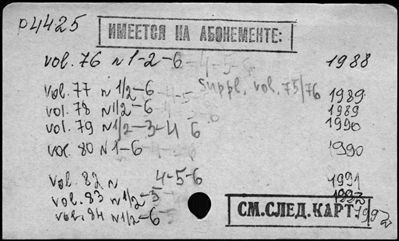 04425
ИМЕЕТСЯ НА АБОНЕМЕНТЕ:
vol. 76 n 1-2-6 -4-5-6 1988
Suppl. vol. 75/76
vol. 77 n 1/2-6 1989
vol. 78 n 1/2-6 1989
vol. 79 n 1/2-3-4 6 1990
vol. 80 n 1-6 1990
vol. 82 n 4-5-6 1991
vol. 83 n 1/2-5 1992
vol. 84 n 1/2-6 1992
СМ.СЛЕД.КАРТ